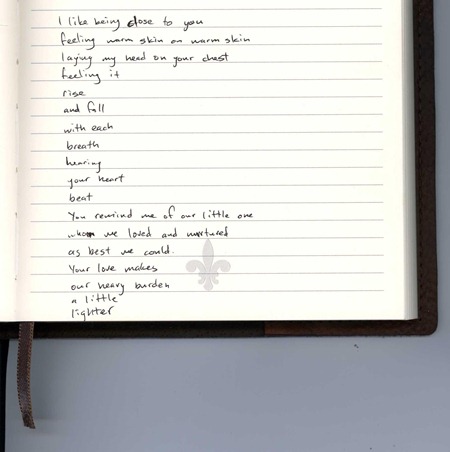 I like being close to you
feeling warm skin on warm skin
laying my head on your chest
feeling it
rise
and fall
with each
breath
hearing
your heart
beat
You remind me of our little one
whom we loved and nurtured
as best we could.
Your love makes
our heavy burden
a little
lighter